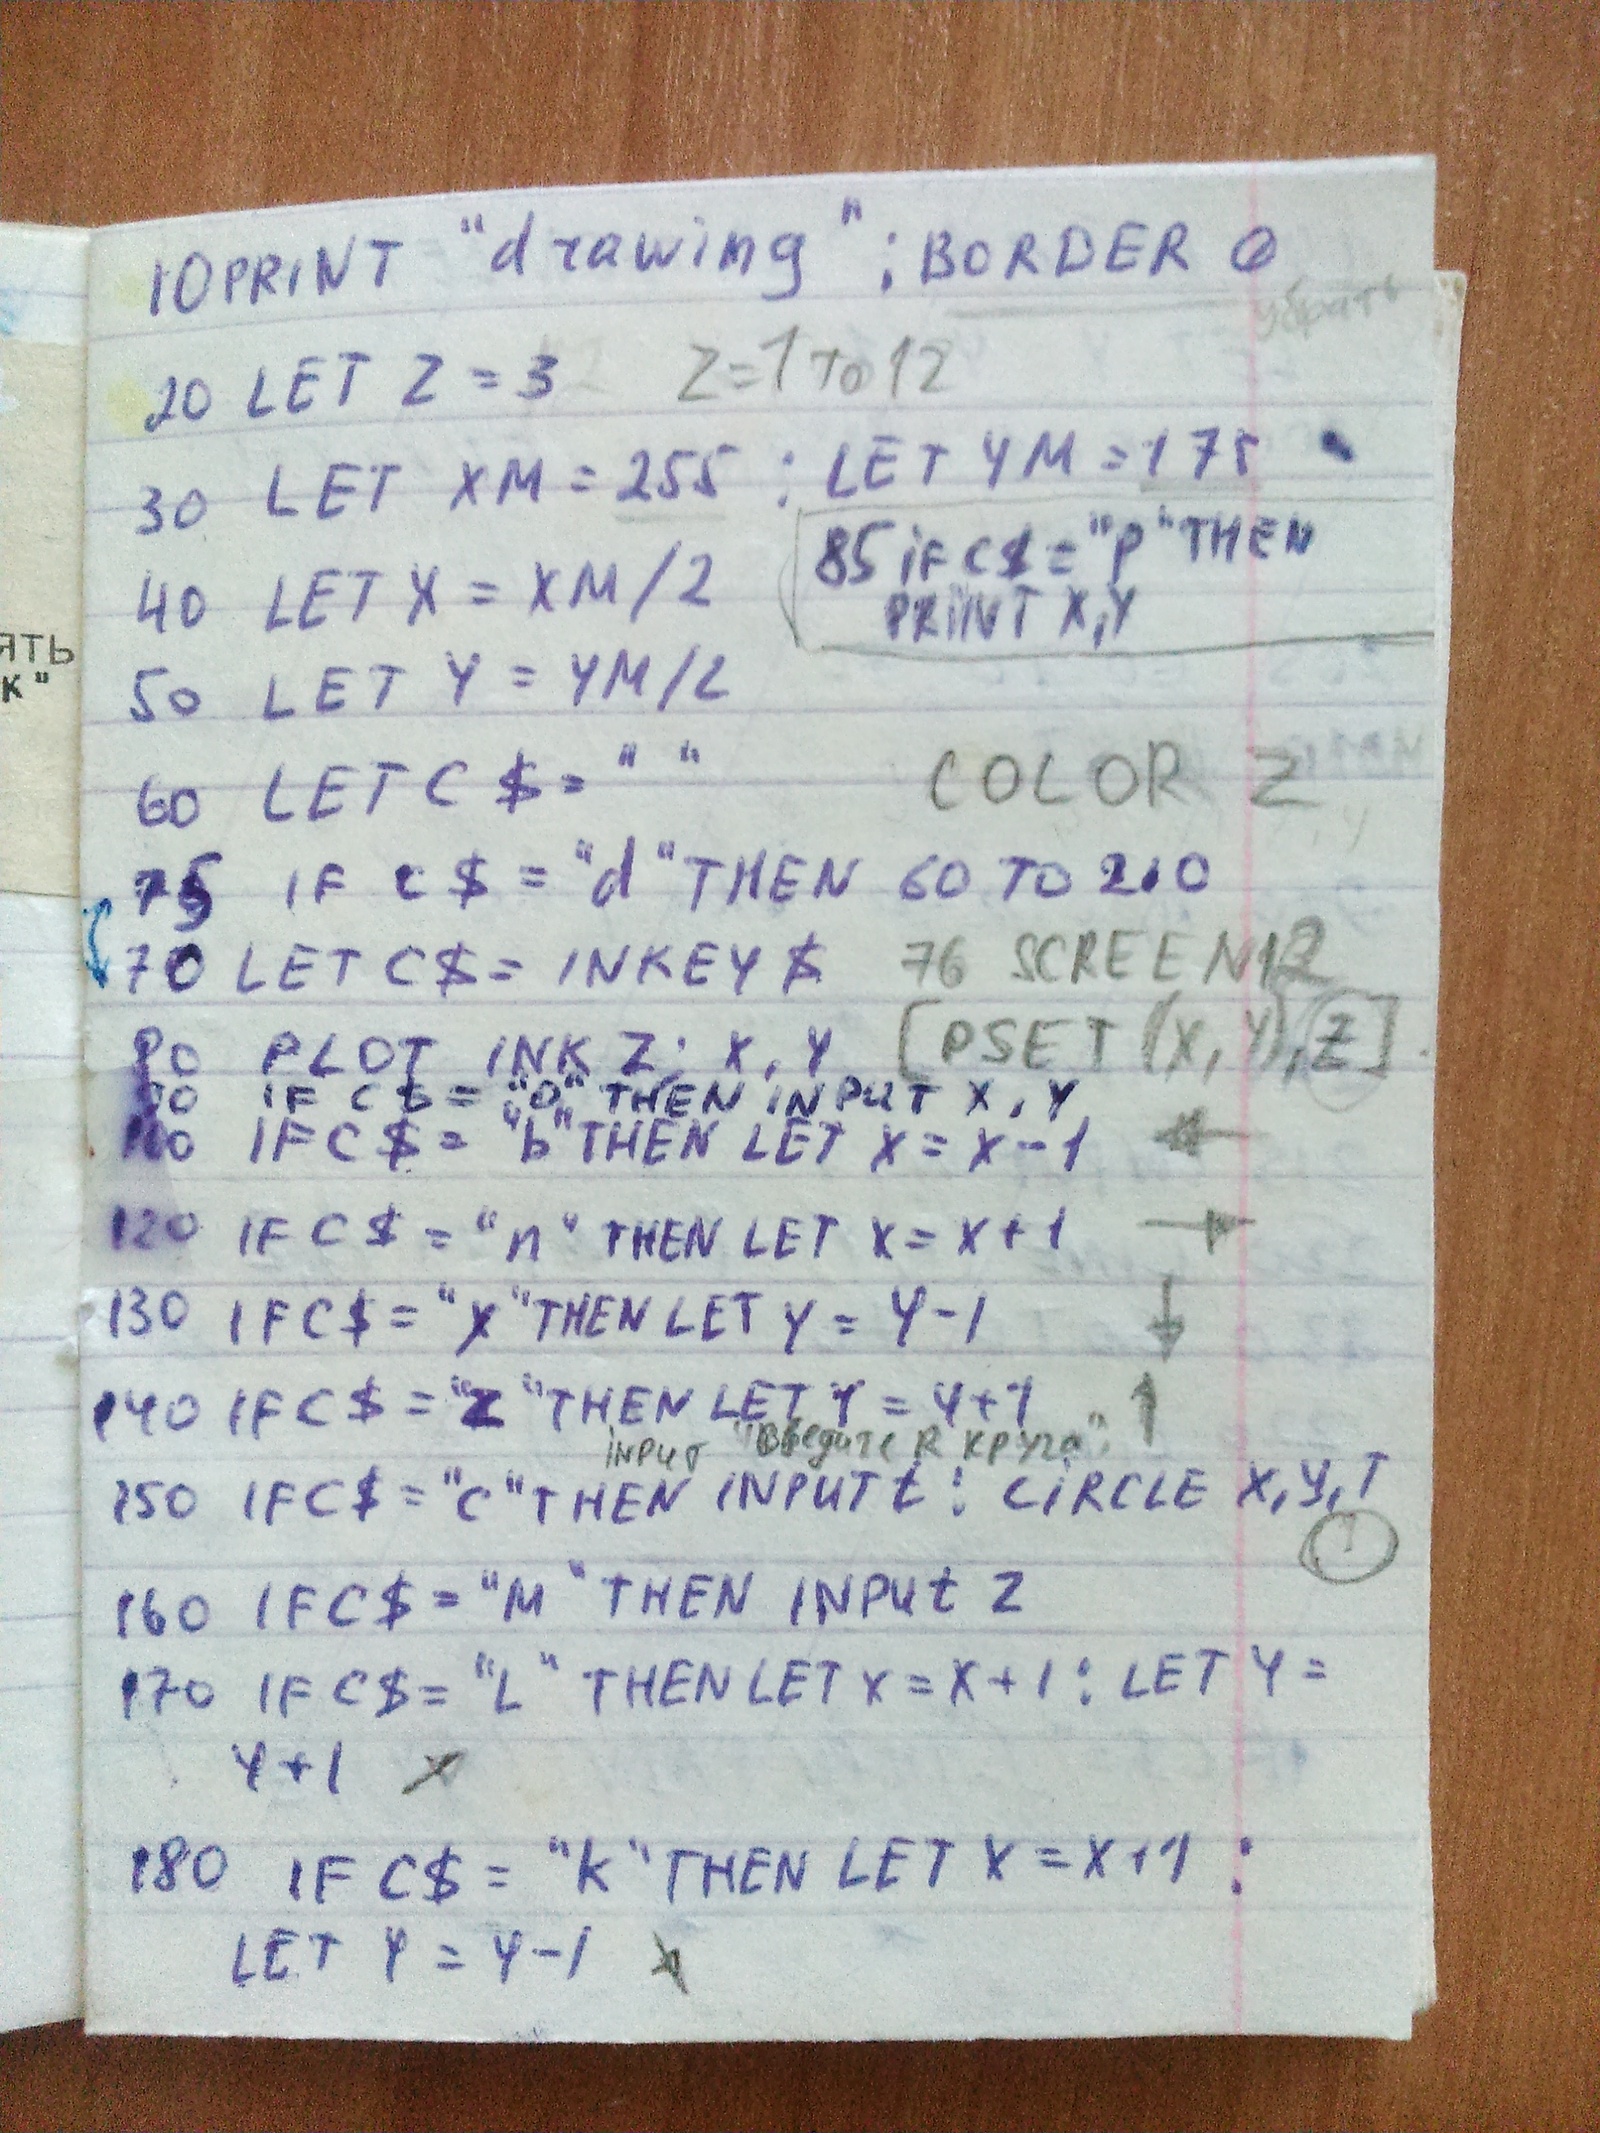 ЯТЬ
К"
10 PRINT "drawing" ; BORDER 0
убрать
20 LET Z = 3 Z=1 TO 12
30 LET XM = 255 : LET YM = 175
85 IF C$ = "P" THEN
PRINT X,Y
40 LET X = XM/2
50 LET Y = YM/2
60 LET C $ = " " COLOR Z
75 IF C $ = "d" THEN GO TO 210
70 LET C$ = INKEY $ 76 SCREEN 12
80 PLOT INK Z; X, Y [PSET (X, Y), Z]
90 IF C $ = "O" THEN INPUT X, Y
IF C $ = "b" THEN LET X = X-1 ←
120 IF C $ = "n" THEN LET X = X+1 →
130 IF C $ = "X" THEN LET Y = Y-1 ↓
140 IF C $ = "Z" THEN LET Y = Y+1 ↑
INPUT "Введите R круга",
150 IF C $ = "C" THEN INPUT t : CIRCLE X,Y,T
160 IF C $ = "M" THEN INPUT Z
170 IF C $ = "L" THEN LET X = X+1 : LET Y =
Y+1 ↗
180 IF C $ = "K" THEN LET X = X+1 :
LET Y = Y-1 ↘